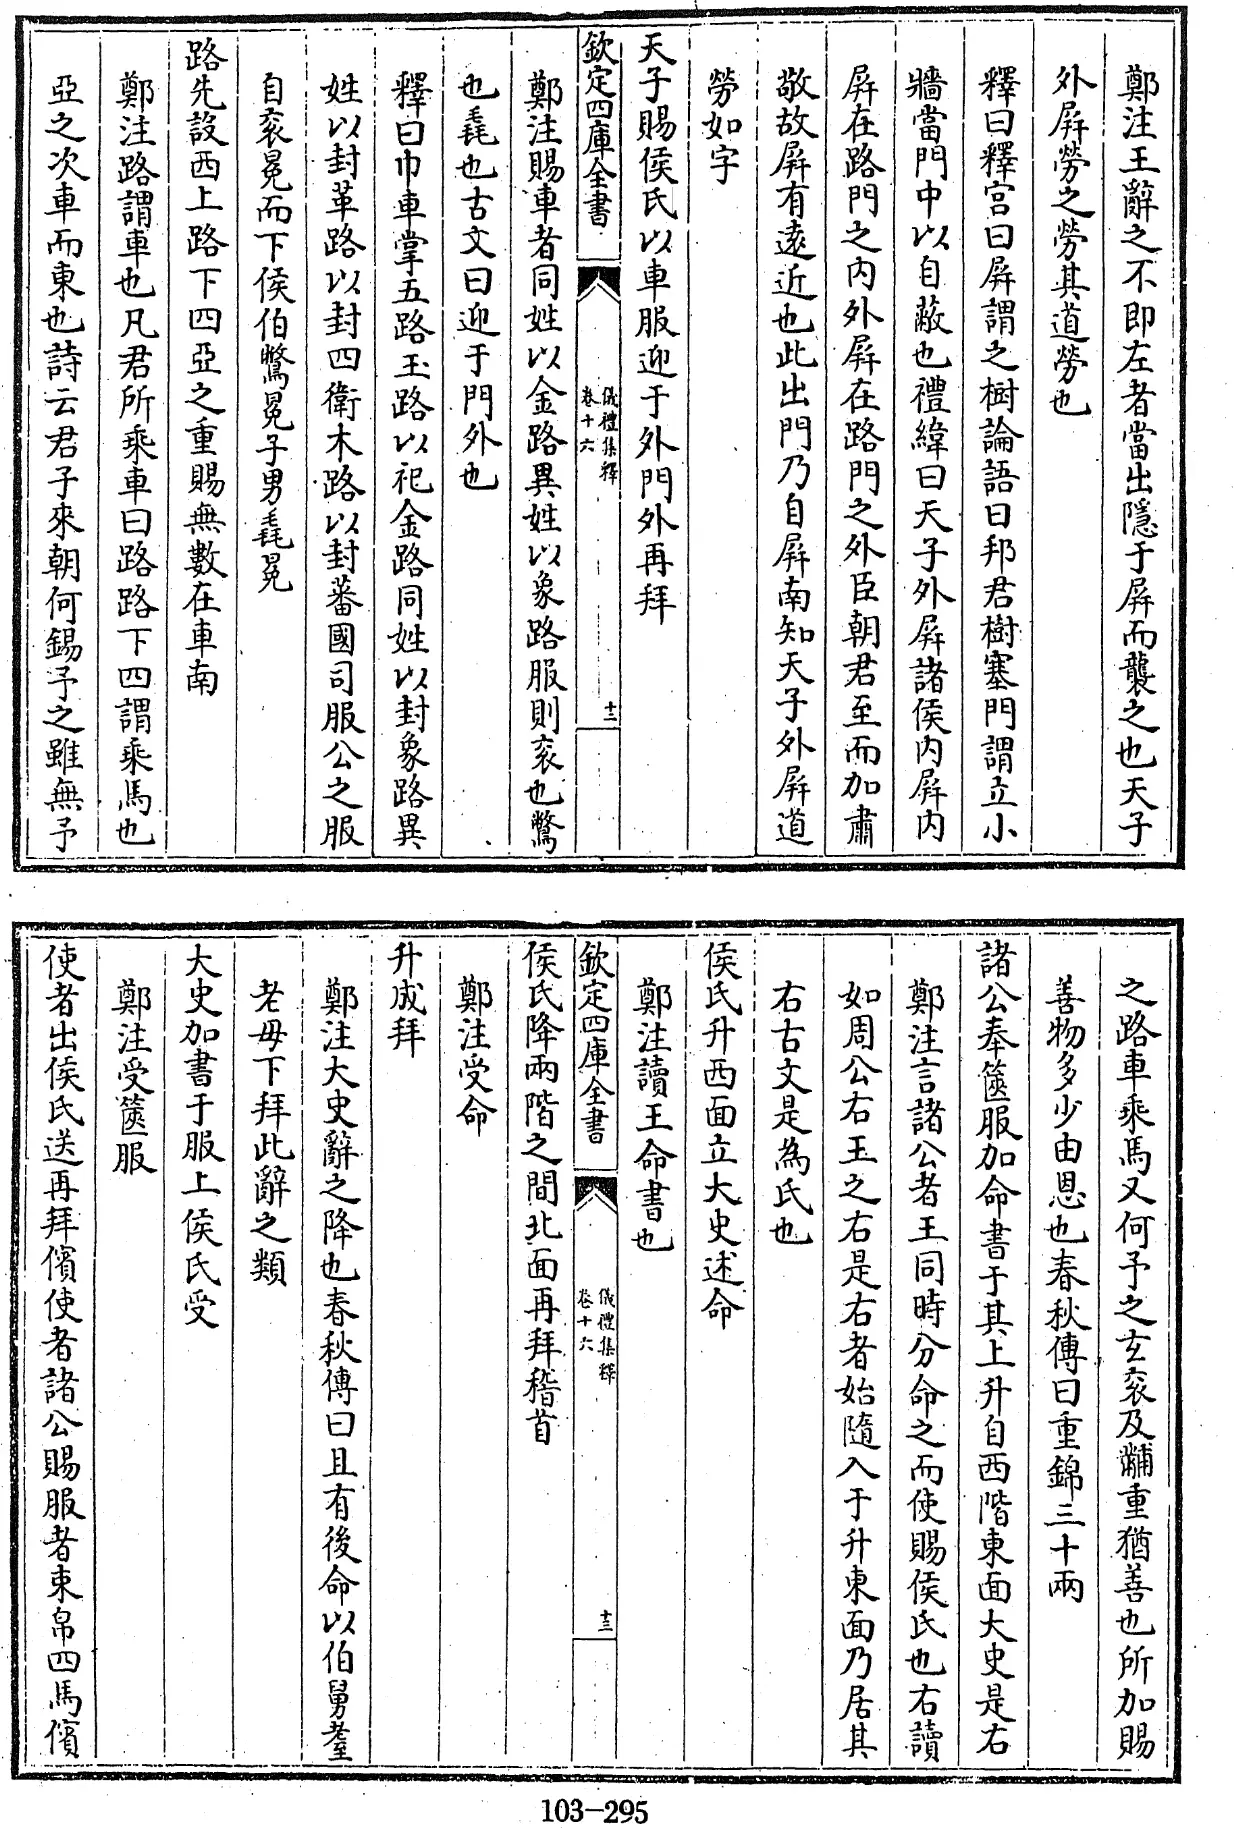 鄭注王辭之不即左者當出隱于屏而襲之也天子
外屏勞之勞其道勞也
釋曰釋宫曰屏謂之樹論語曰邦君樹塞門謂立小
牆當門中以自蔽也禮緯曰天子外屏諸侯内屏内
屏在路門之内外屏在路門之外臣朝君至而加肅
敬故屏有遠近也此出門乃自屏南知天子外屏道
勞如字
天子賜侯氏以車服迎于外門外再拜
欽定四庫全書
儀禮集釋
卷十六
十二
鄭注賜車者同姓以金路異姓以象路服則衮也鷩
也毳也古文曰迎于門外也
釋曰巾車掌五路玉路以祀金路同姓以封象路異
姓以封革路以封四衛木路以封蕃國司服公之服
自衮冕而下侯伯鷩冕子男毳冕
路先設西上路下四亞之重賜無數在車南
鄭注路謂車也凡君所乘車曰路路下四謂乘馬也
亞之次車而東也詩云君子來朝何錫予之雖無予
之路車乘馬又何予之玄衮及黼重猶善也所加賜
善物多少由恩也春秋傳曰重錦三十兩
諸公奉篋服加命書于其上升自西階東面大史是右
鄭注言諸公者王同時分命之而使賜侯氏也右讀
如周公右王之右是右者始隨入于升東面乃居其
右古文是為氏也
侯氏升西面立大史述命
鄭注讀王命書也
欽定四庫全書
儀禮集釋
卷十六
十三
侯氏降兩階之間北面再拜稽首
鄭注受命
升成拜
鄭注大史辭之降也春秋傳曰且有後命以伯舅耋
老毋下拜此辭之類
大史加書于服上侯氏受
鄭注受篋服
使者出侯氏送再拜儐使者諸公賜服者束帛四馬儐
103-295